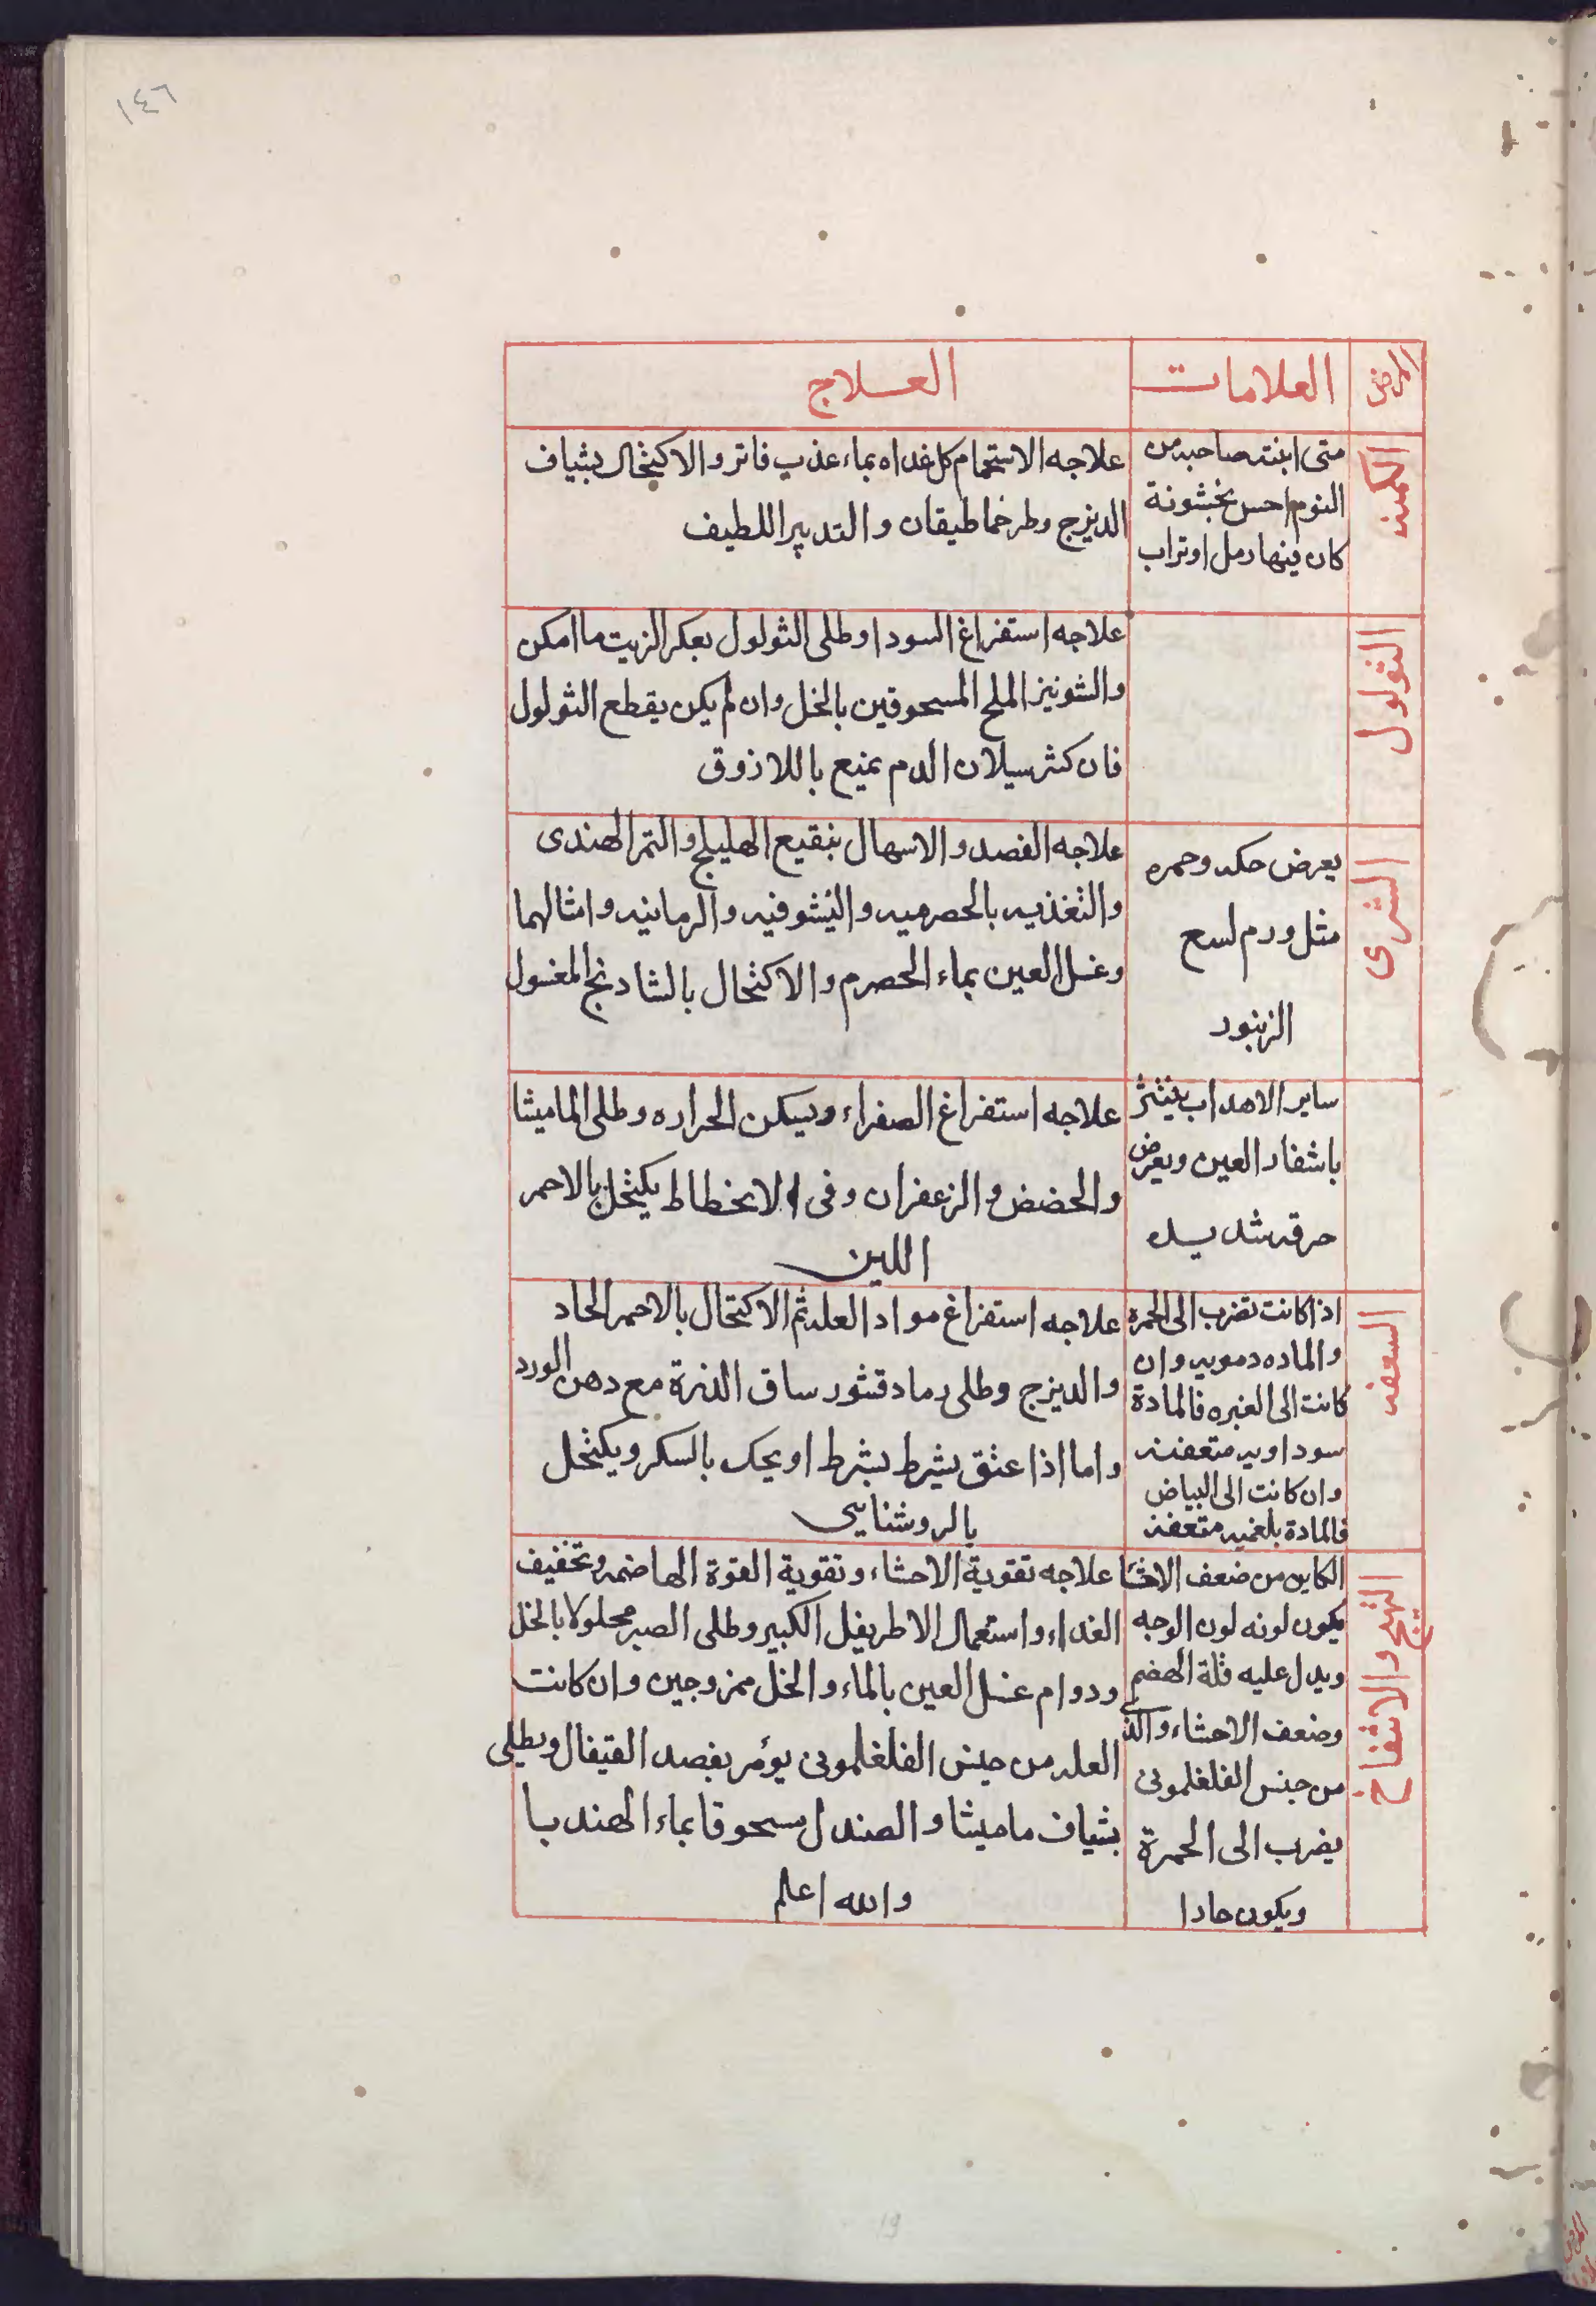 ١٤٦
المرض
العلامات
العلاج
الكمنه
متى ابنته صاحبه من
النوم احس بخشونة
كان بينها رمل او تراب
علاجه الاستحمام كل غداه بماء عذب فاتر والاكتحال بشياف
الديزج وطرخماطيقان والتدبير اللطيف
الثولول
علاجه استفراغ السودا وطلى الثولول بعكر الزيت ما امكن
والشونيز الملح المسحوقين بالخل وان لم يكن يقطع الثولول
فان كثر سيلان الدم يمنع باللازوق
الشرى
يعرض حكه وحمره
مثل ورم لسع
الزنبور
علاجه الفصد والاسهال بنقيع الهليلج والتمر الهندى
والتغذيه بالحصرميه والنشوفيه والرمانيه وامثالهما
وغسل العين بماء الحصرم والاكتحال بالشادنج المغسول
ساير الاهداب ينتثر
باشفار العين ويعرض
حرقه شديده
علاجه استفراغ الصفراء ويسكن الحراره وطلى الماميثا
والحضض والزعفران وفى الانحطاط يكتحل بالاحمر
اللين
السعفه
اذا كانت تضرب الى الحمره
والماده دمويه وان
كانت الى الغبره فالمادة
سوداويه متعفنه
وان كانت الى البياض
فالمادة بلغميه متعفنه
علاجه استفراغ مواد العله ثم الاكتحال بالاحمر الحاد
والديزج وطلى رماد قشور ساق الذرة مع دهن الورد
واما اذا عتق يشرط بشرط او يحك بالسكر ويكتحل
بالروشنايى
التهيج والانتفاخ
الكاين من ضعف الاحشا
يكون لونه لون الوجه
ويدل عليه قلة الهضم
وضعف الاحشاء والذى
من جنس الفلغلمونى
يضرب الى الحمرة
ويكون حادا
علاجه تقوية الاحشاء وتقوية القوة الهاضمه وتخفيف
الغداء واستعمال الاطريفل الكبير وطلى الصبر محلولا بالخل
ودوام غسل العين بالماء والخل ممزوجين وان كانت
العله من جنس الفلغلمونى يؤمر بفصد القيفال ويطلى
بشياف ماميثا والصندل مسحوقا بماء الهندبا
والله اعلم
19
المرض